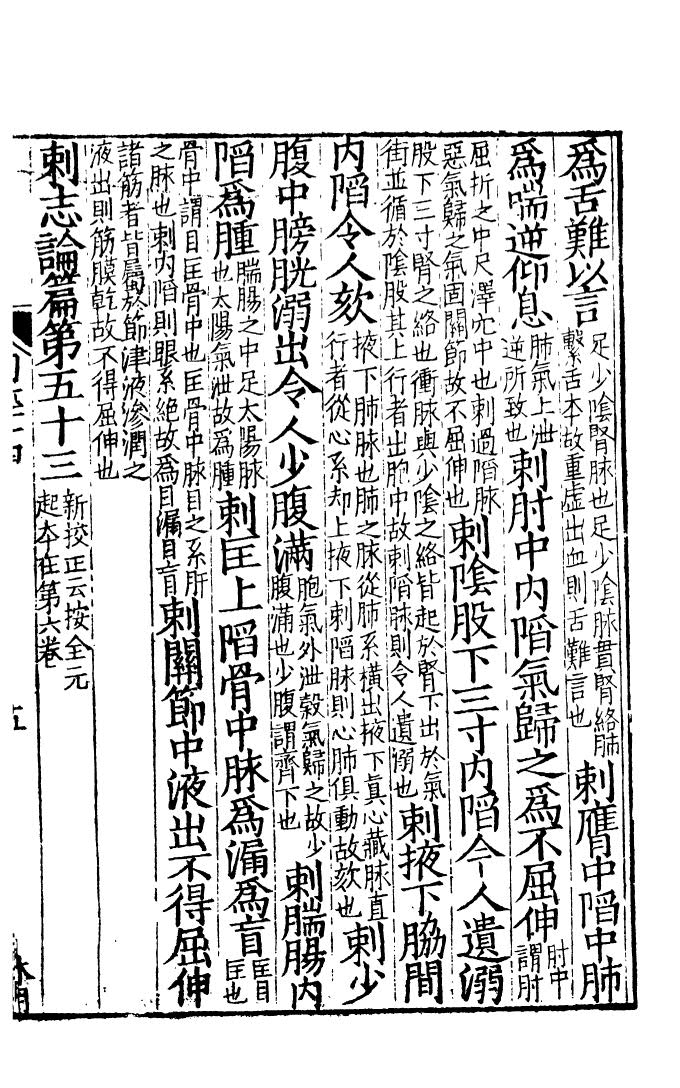 爲舌難以言足少陰腎脉也足少陰脉貫腎絡肺繫舌本故重虛出血則舌難言也刺膺中陷中肺
爲喘逆仰息肺氣上泄逆所致也刺肘中内陷氣歸之爲不屈伸肘中謂肘
屈折之中尺澤穴中也刺過陷脉惡氣歸之氣固關節故不屈伸也刺陰股下三寸内陷令人遺溺
股下三寸腎之絡也衝脉與少陰之絡皆起於腎下出於氣街並循於陰股其上行者出胞中故刺陷脉則令人遺溺也刺掖下脇間
内陷令人欬掖下肺脉也肺之脉從肺系橫出掖下真心藏脉直行者從心系却上掖下刺陷脉則心肺俱動故欬也刺少
腹中膀胱溺出令人少腹滿胞氣外泄穀氣歸之故少腹滿也少腹謂齊下也刺腨腸内
陷爲腫腨腸之中足太陽脉也太陽氣泄故爲腫刺匡上陷骨中脉爲漏爲盲匡目匡也
骨中謂目匡骨中也匡骨中脉目之系肝之脉也刺内陷則眼系絶故爲目漏目盲刺關節中液出不得屈伸
諸筋者皆屬於節津液滲潤之液出則筋膜乾故不得屈伸也
刺志論篇第五十三新挍正云按全元起本在第六卷
五